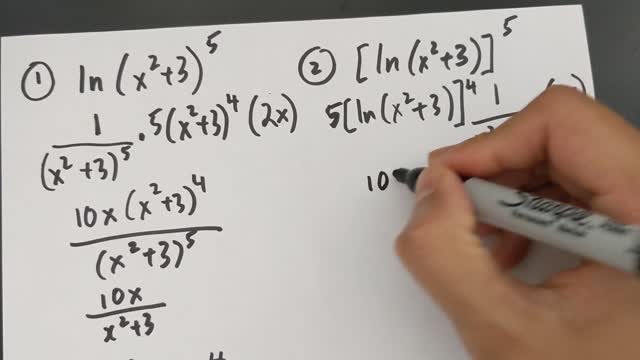 ① ln(x²+3)⁵
1/(x²+3)⁵ · 5(x²+3)⁴(2x)
10x(x²+3)⁴/(x²+3)⁵
10x/x²+3
② [ln(x²+3)]⁵
5[ln(x²+3)]⁴ 1/
10
Sharpie